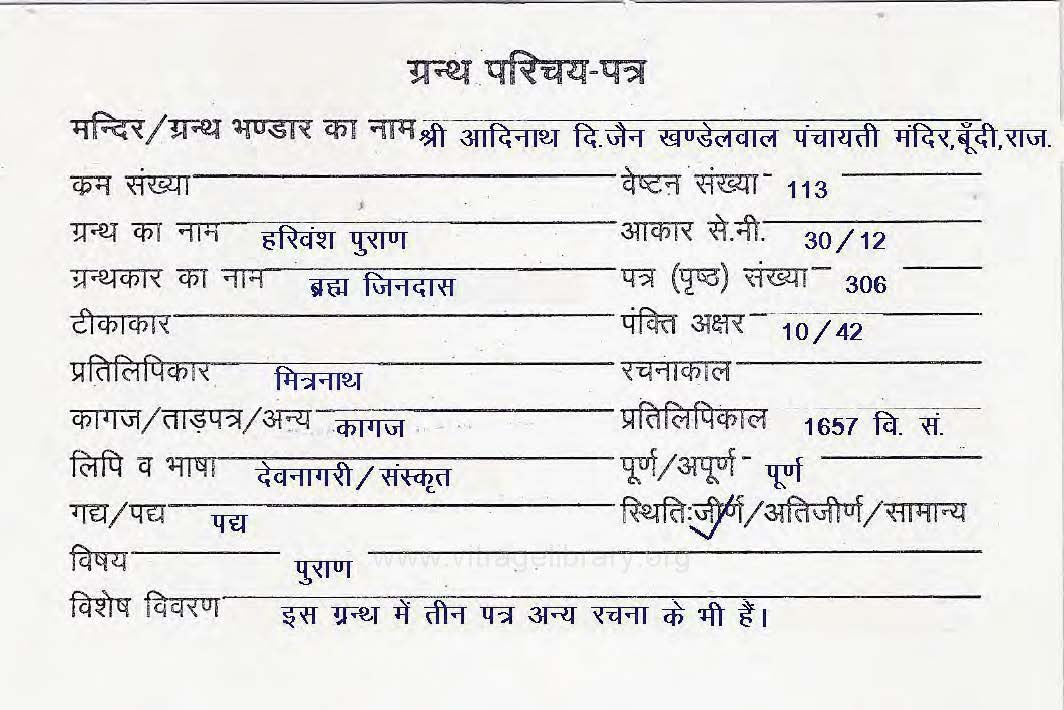 ग्रन्थ परिचय-पत्र
मन्दिर/ग्रन्थ भण्डार का नाम श्री आदिनाथ दि.जैन खण्डेलवाल पंचायती मंदिर,बूँदी,राज.
क्रम संख्या वेष्टन संख्या 113
ग्रन्थ का नाम हरिवंश पुराण आकार से.मी. 30/12
ग्रन्थकार का नाम ब्रह्म जिनदास पत्र (पृष्ठ) संख्या 306
टीकाकार पंक्ति अक्षर 10/42
प्रतिलिपिकार मित्रनाथ रचनाकाल
कागज/ताड़पत्र/अन्य कागज प्रतिलिपिकाल 1657 वि. सं.
लिपि व भाषा देवनागरी/संस्कृत पूर्ण/अपूर्ण पूर्ण
गद्य/पद्य पद्य स्थितिःजीर्ण/अतिजीर्ण/सामान्य
विषय पुराण www.vitragelibrary.org
विशेष विवरण इस ग्रन्थ में तीन पत्र अन्य रचना के भी हैं।